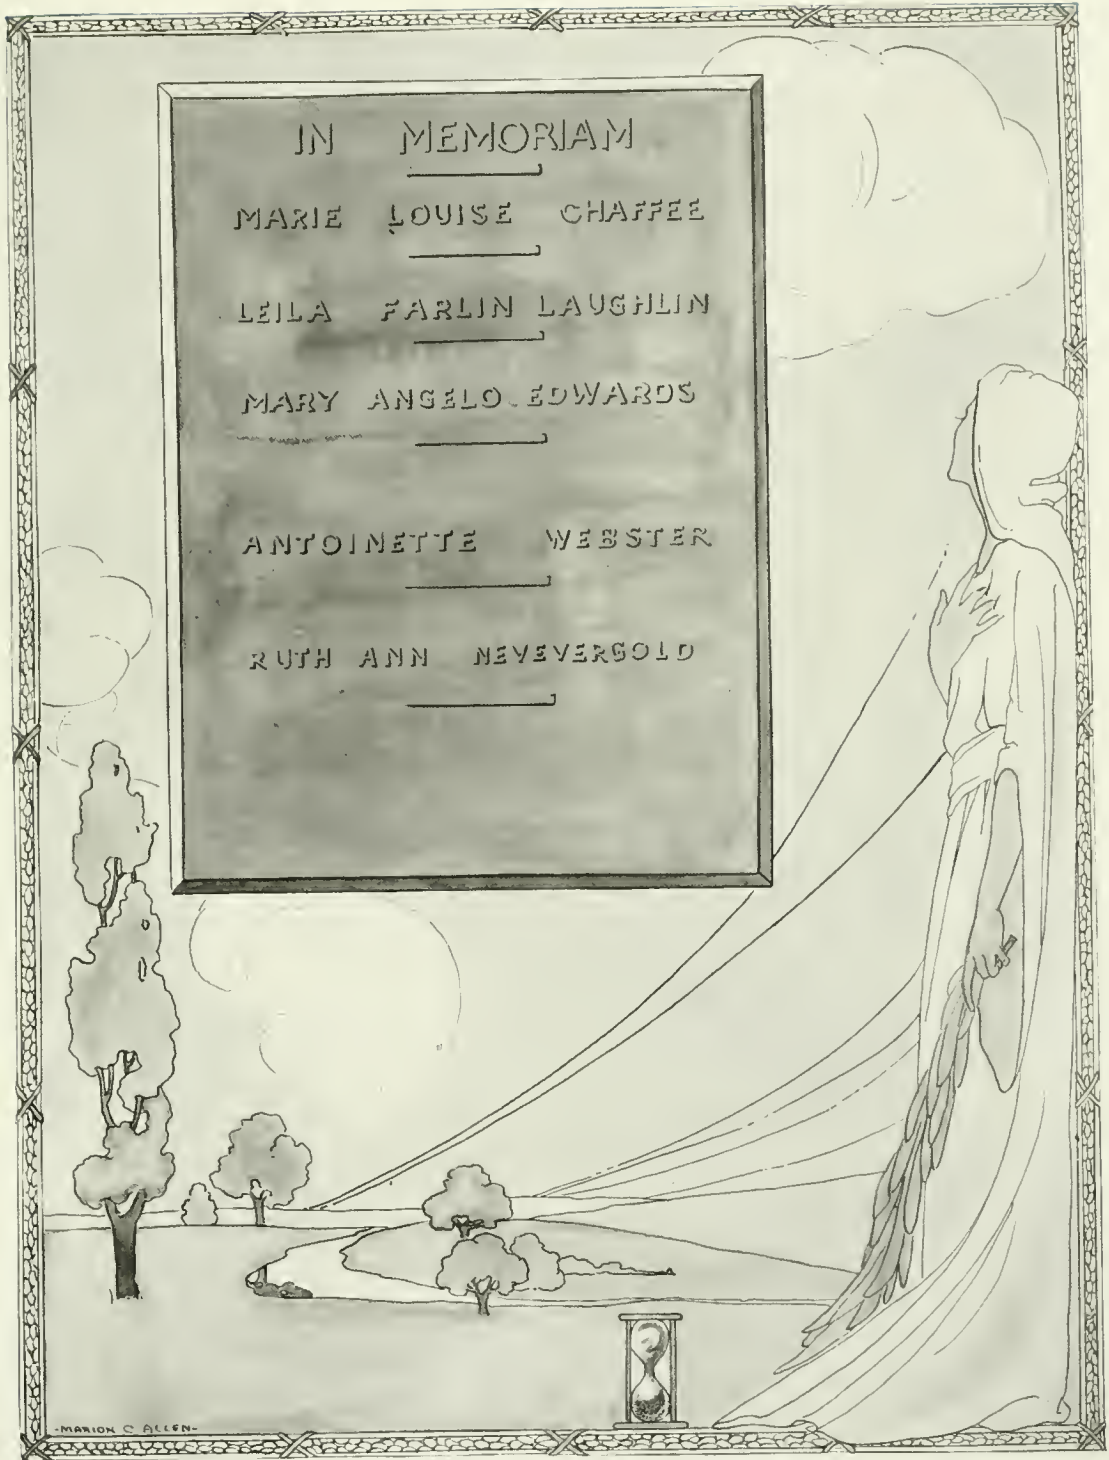 IN MEMORIAM
MARIE LOUISE CHAFFEE
LEILA FARLIN LAUGHLIN
MARY ANGELO EDWARDS
ANTOINETTE WEBSTER
RUTH ANN NEVEVERGOLD
-MARION C ALLEN-